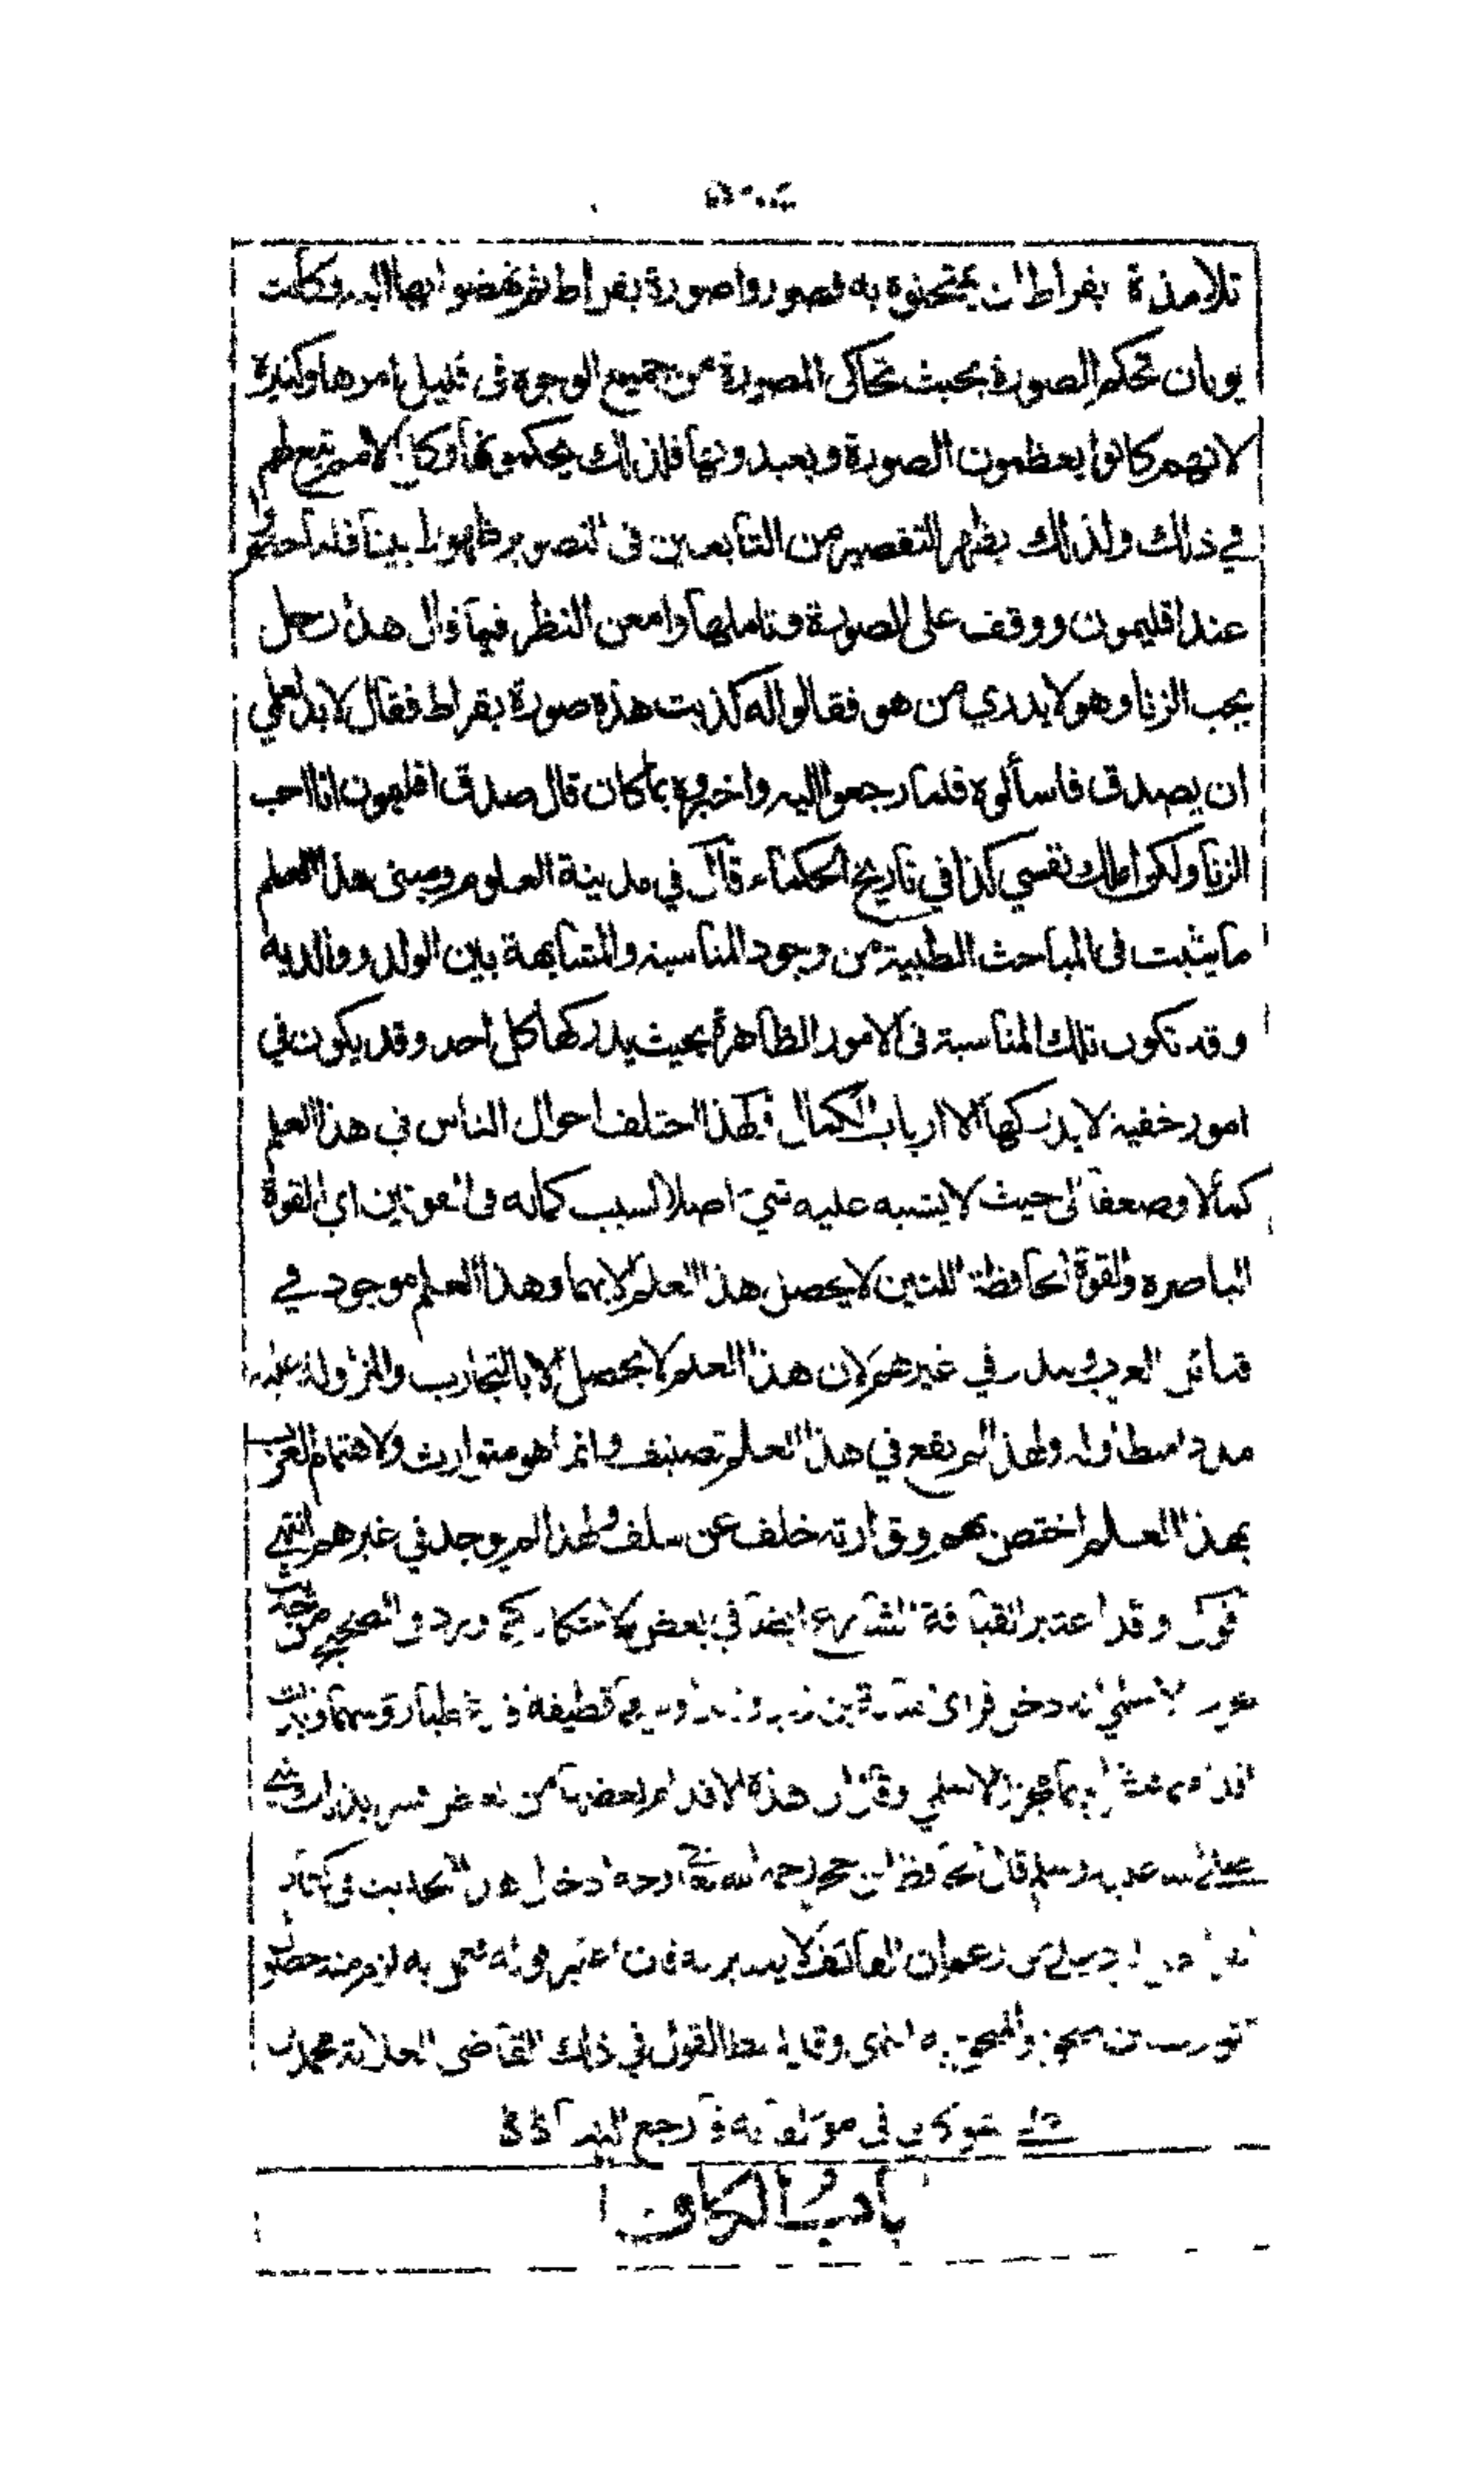 تلامذة بقراط ان يمتحنوه به فصوروا صورة بقراط ثم نهضوا بها اليه وكانت
يونان تحكم الصورة بحيث تحاكى المصورة من جميع الوجوه فى قليل امرها وكثيره
لانهم كانوا يعظمون الصورة ويعبدونها فلذلك يحكمونها وكل الامم تبع لهم
في ذلك ولذلك يظهر التقصير من التابعين فى التصوير ظهورا بينا فلما حضروا
عند اقليمون ووقف على الصورة وتاملها وامعن النظر فيها قال هذا رجل
يحب الزنا وهو لا يدري من هو فقالوا له كذبت هذه صورة بقراط فقال لا بد لعلمي
ان يصدق فاسألوه فلما رجعوا اليه واخبروه بما كان قال صدق اقليمون انا احب
الزنا ولكن املك نفسي كذا في تاريخ الحكماء قال في مدينة العلوم ومبنى هذا العلم
ما يثبت فى المباحث الطبية من وجود المناسبة والمشابهة بين الولد ووالديه
وقد تكون تلك المناسبة فى الامور الظاهرة بحيث يدركها كل احد وقد يكون في
امور خفية لا يدركها الا ارباب الكمال ولهذا اختلف احوال الناس فى هذا العلم
كمالا وضعفا الى حيث لا يشتبه عليه شيء اصلا لسبب كماله فى القوتين اي القوة
الباصره والقوة الحافظة اللتين لا يحصل هذا العلم الا بهما وهذا العلم موجود في
قبائل العرب ويندر في غيرهم لان هذا العلم لا يحصل الا بالتجارب والمزاولة عليه
مددا متطاولة ولهذا لم يقع في هذا العلم تصنيف وانما هو متوارث ولاهتمام العرب
بهذا العلم اختص بهم وتوارثه خلف عن سلف ولهذا لم يوجد في غيرهم انتهى
اقول وقد اعتبر القيافة الشارع ايضا في بعض الاحكام كما ورد في الصحيح من حديث
الاسلمي انه دخل فراى اسامة بن زيد وزيدا وعليهما قطيفة قد غطيا رؤسهما وبدت
اقدامهما الاسلمي وقال ان هذه الاقدام بعضها من بعض بذلك النبي
صلى الله عليه وسلم قال الحافظ ابن حجر رحمه الله تعالى وجه ادخال هذا الحديث فى كتاب
الفرائض الرد على من زعم ان القائف لا يعتبر به فان اعتبر قوله فعمل به لزم منه حصول
التوارث بين الملحق والملحق به انتهى وقد القول في ذلك القاضى العلامة محمد بن
علي شوكاني فى مؤلفاته فارجع اليه
باب الكاف